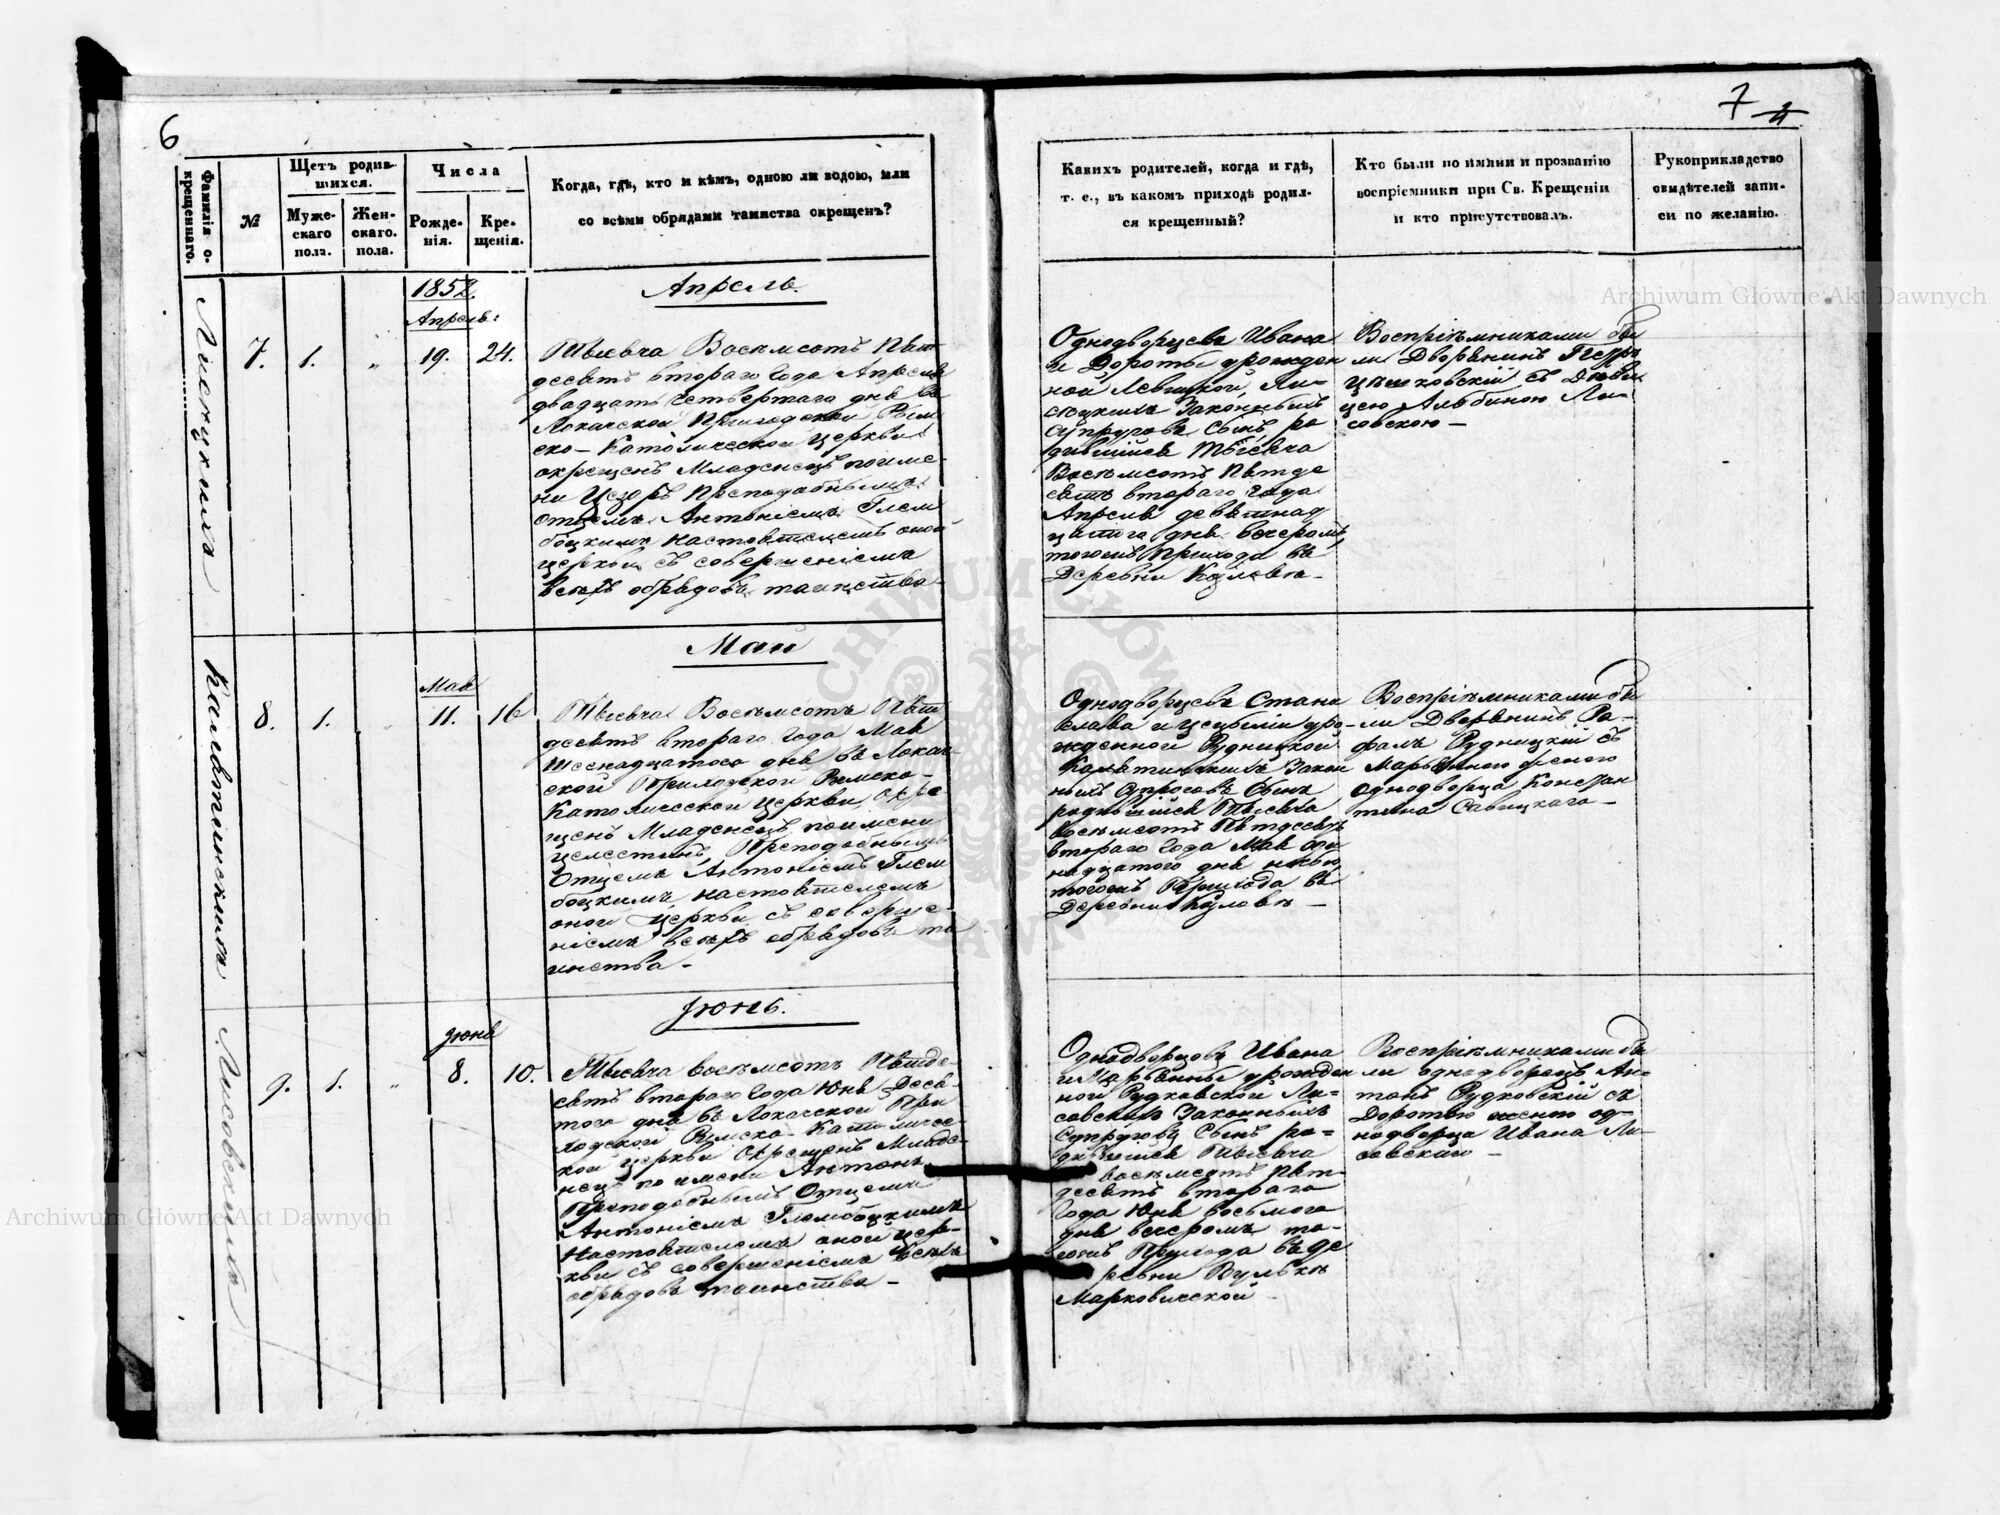 6
Фамилія о-
крещеннаго.
№
Щетъ родив-
шихся.
Муже-
скаго
пола.
Жен-
скаго
пола.
Числа
Рожде-
нія.
Кре-
щенія.
Когда, гдѣ, кто и кѣмъ, одною ли водою, или
со всѣми обрядами таинства окрещенъ?
1852
Апрель:
Апрель.
7.
1.
"
19.
24.
Тысяча Восѣмсотъ Пять
десятъ втораго Года Апреля
двадцать четвертаго дня въ
Локачской Приходской Рим
ско-Католической Церкви
окрещенъ Младенецъ по име-
ни Преподобнымъ
Отцемъ Антоніемъ Глем
боцкимъ настоятелемъ оной
церкви съ совершеніемъ
всѣхъ обрядовъ таинства-
Май
Мая
Кальятинскихъ
8.
1.
"
11.
16
Тысяча Восѣмсотъ Пять
десятъ втораго Года Мая
Шеснадцатого дня въ Локач
ской Приходской Римско-
Католической Церкви Окре
щенъ Младенецъ по имени
Целестинъ, Преподобнымъ
Отцемъ Антоніемъ Глем
боцкимъ, настоятелемъ
оной Церкви съ соверше-
ніемъ всѣхъ обрядовъ та
инства-
Іюнь.
Іюня
Лисовскихъ
9.
1.
"
8.
10.
Тысяча восѣмсотъ Пятьде-
сятъ втораго Года Юня Деся-
того дня въ Локачской При
ходской Римско-Католичес-
кой церкви Окрещенъ Младе-
нецъ по имени Антонъ
Преподобнымъ Отцемъ
Антоніемъ Глембоцкимъ
Настоятелемъ оной Цер-
кви съ совершеніемъ всѣхъ
обрядовъ таинства-
7
Какихъ родителей, когда и гдѣ,
т. е., въ какомъ приходѣ родил-
ся крещенный?
Кто были по имяни и прозванію
воспріемники при Св. Крещеніи
и кто присутствовалъ.
Рукоприкладство
свидѣтелей запи-
си по желанію.
Однодворцевъ Ивана
и Дороты урожден
ной Ли-
Законныхъ
Супруговъ Сынъ ро
дившійся Тысяча
Восѣмсотъ Пятьде
сятъ втораго года
Апреля девятнад
цатаго дня вечеромъ,
тогожъ Прихода въ
Деревни
Воспріѣмниками бы
ли Дворянинъ
съ Дѣви
цею Альбиною Ли-
совскою-
Однодворцевъ Стани
слава и уро-
жденной Рудницкой
Кальятинскихъ Закон
ныхъ Супруговъ Сынъ
родившійся Тысяча
восѣмсотъ Пятдесятъ
втораго Года Мая оди
надцатого дня ночью
тогожъ Прихода въ
Деревни
Воспріѣмниками бы
ли Дворянинъ Ра-
фалъ Рудницкій съ
Марьянною женою
однодворца Констан
тина Савицкаго-
Однодворцовъ Ивана
и Марьянны урожден
ной Рудковской Ли-
совскихъ Законныхъ
Супруговъ Сынъ ро=
дившійся Тысяча
восѣмсотъ Пять
десятъ втораго
Года Юня восьмого
дня вечеромъ то-
гожъ Прихода въ де
ревни Вулькѣ
Марковичской-
Воспріѣмниками бы
ли однодворецъ Ан-
тонъ Рудковскій съ
Доротою женою од-
нодворца Ивана Ли-
совскаго-
Archiwum Główne Akt Dawnych
Archiwum Główne Akt Dawnych